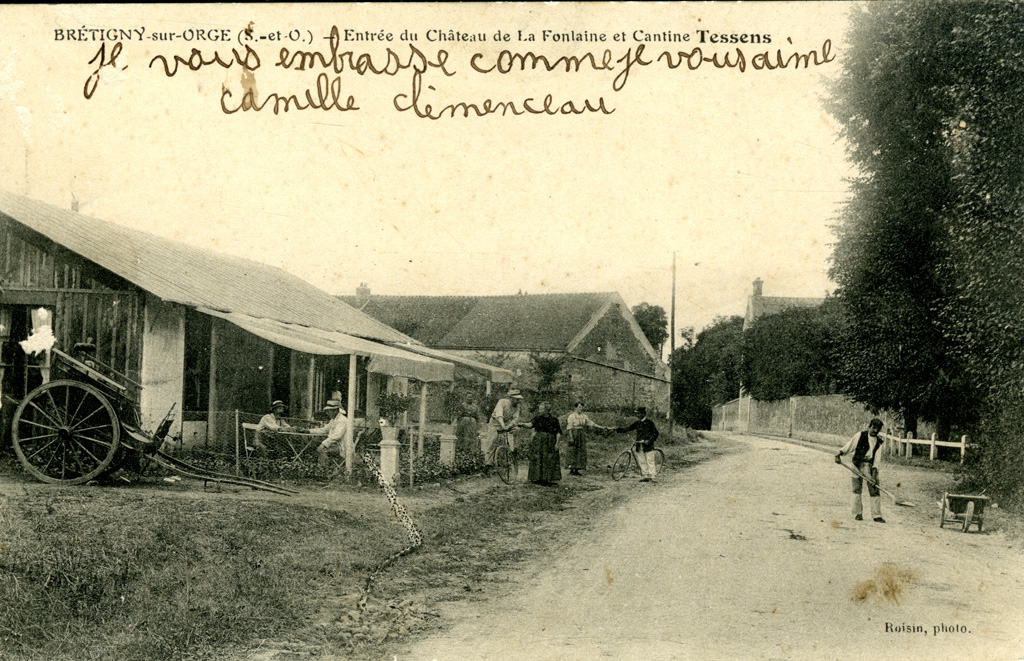 BRÉTIGNY-sur-ORGE (S.-et-O.) - Entrée du Château de La Fontaine et Cantine Tessens
je vous embrasse comme je vous aime
camille clémenceau
Roisin, photo.